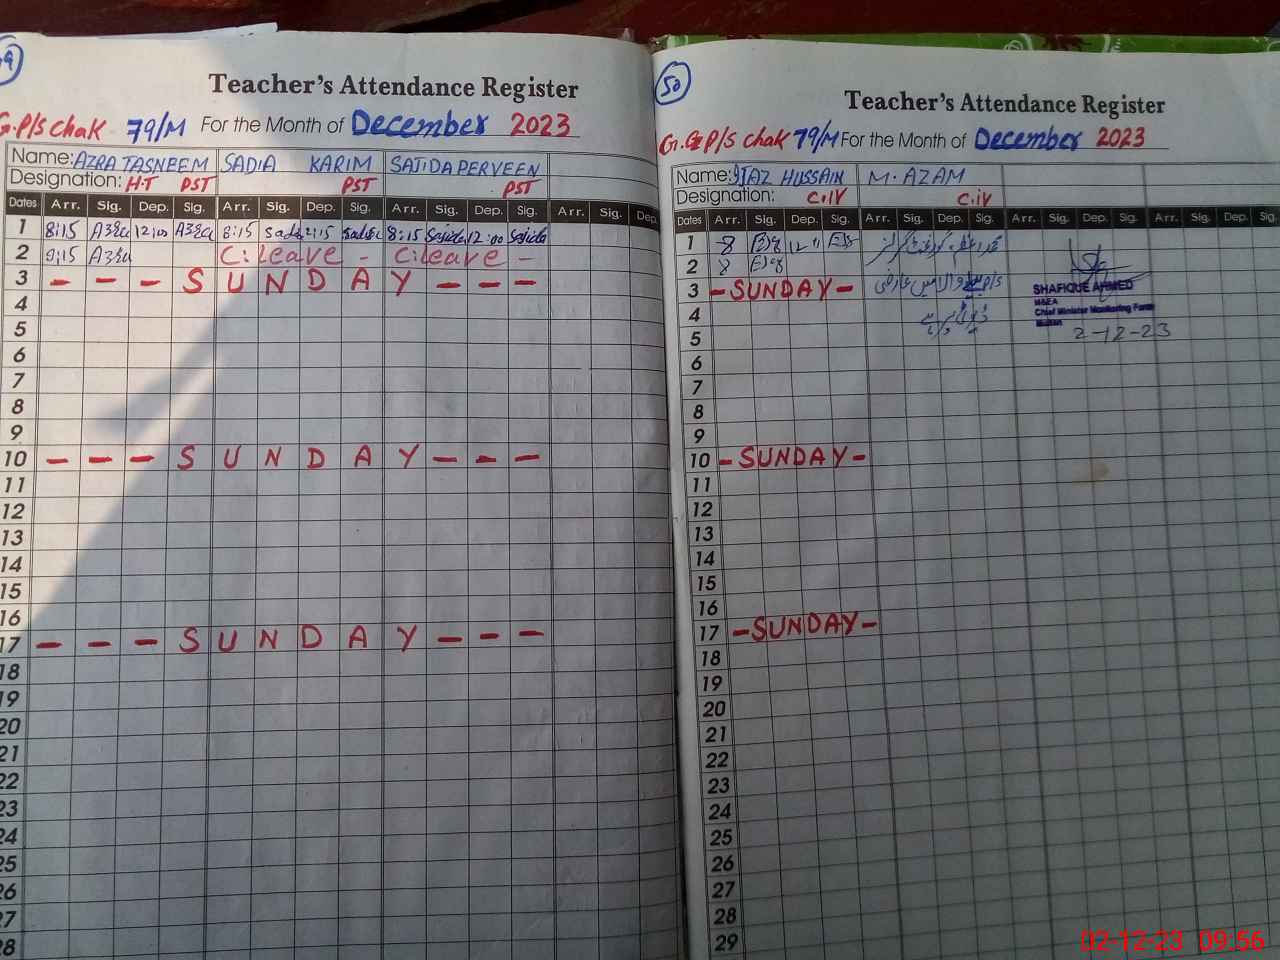 49
Teacher's Attendance Register
G.P/S Chak 79/M For the Month of December 2023
Name: AZRA TASNEEM SADIA KARIM SAJIDA PERVEEN
Designation: H.T PST PST PST
Dates Arr. Sig. Dep. Sig. Arr. Sig. Dep. Sig. Arr. Sig. Dep. Sig. Arr. Sig. Dep.
1 8:15 Azra 12:00 Azra 8:15 12:15 8:15 Sajida 12:00 Sajida
2 9:15 Azra C: Leave - C: Leave -
3 - - - S U N D A Y - - -
4
5
6
7
8
9
10 - - - S U N D A Y - - -
11
12
13
14
15
16
17 - - - S U N D A Y - - -
18
19
20
21
22
23
24
25
26
27
28
50
Teacher's Attendance Register
G.GP/S Chak 79/M For the Month of December 2023
Name: IJAZ HUSSAIN M. AZAM
Designation: C.IV C.IV
Dates Arr. Sig. Dep. Sig. Arr. Sig. Dep. Sig. Arr. Sig. Dep. Sig. Arr. Sig. Dep. Sig.
1 8 12
2 8
3 -SUNDAY- P/S
SHAFIQUE AHMED
M&EA
Chief Minister Monitoring Force
Multan
2-12-23
4
5
6
7
8
9
10 -SUNDAY-
11
12
13
14
15
16
17 -SUNDAY-
18
19
20
21
22
23
24
25
26
27
28
29
02-12-23 09:56